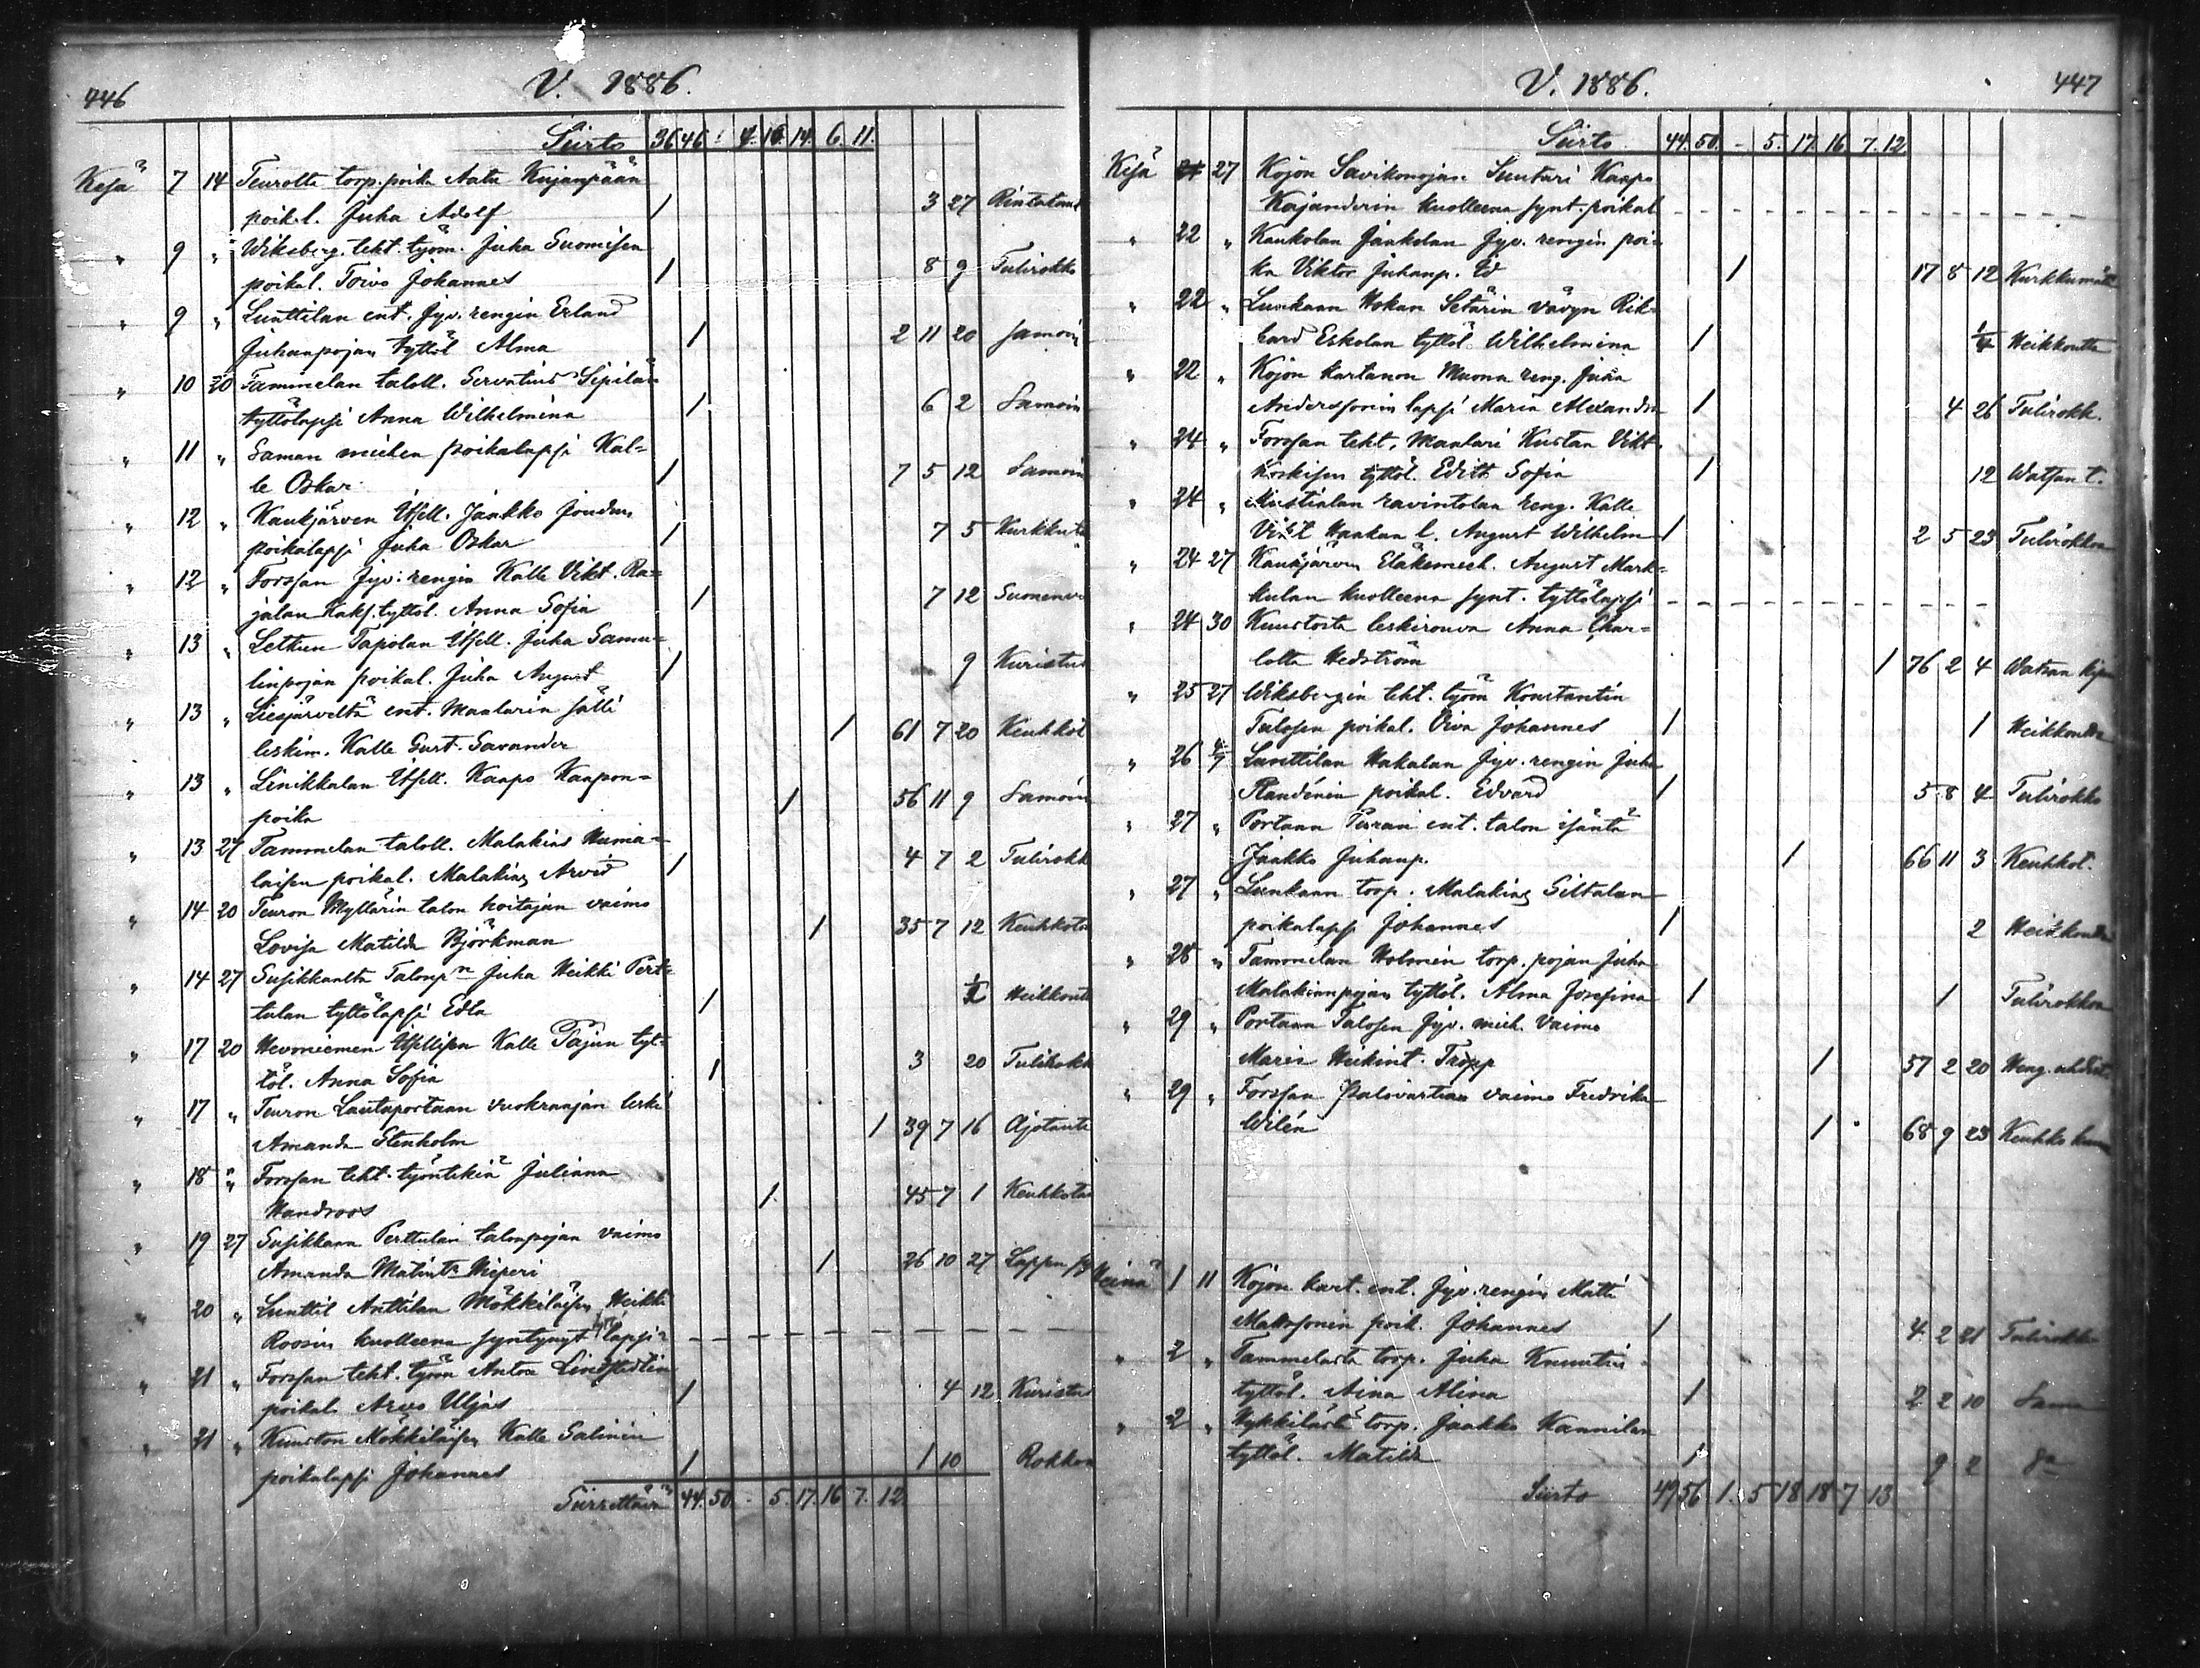 446
V. 1886.
Siirto 36 46 : 4. 16. 14. 6. 11.
Kesä 7 14 Teurolta torp. poika Aatu Kujanpään
poikal. Juha Adolf / 3 27 Rintataud
" 9 " Wiksberg. teht. työm. Juha Suomisen
poikal. Toivo Johannes / 8 9 Tulirokko
" 9 " Lunttilan ent. Jyv. rengin Erland
Juhanpojan tyttöl Alma / 2 11 20 Samoin
" 10 20 Tammelan taloll. Servatius Sipilän
tyttölapsi Anna Wilhelmina / 6 2 Samoin
" 11 " Saman miehen poikalapsi Kal=
le Oskar / 7 5 12 Samoin
" 12 " Kaukjärven Itsell. Jaakko
poikalapsi Juha Oskar / 7 5
" 12 " Forssan Jyv. rengin Kalle Vikt. Ra=
jalan Kaks. tyttöl. Anna Sofia / 7 12
" 13 " Letkun Tapolan Itsell. Juha Samu=
linpojan poikal. Juha August / 9 Kuristus
" 13 " Liesjärveltä ent. Maalarin sälli
leskim. Kalle Gust. Savander / 61 7 20 Keuhkot
" 13 " Linikkalan Itsell. Kaapo Kaapon=
poika / 56 11 9 Samoin
" 13 27 Tammelan taloll. Malakias Huma=
laisen poikal. Malakias Arvid / 4 7 2 Tulirokk
" 14 20 Teuron Myllärin talon hoitajan vaimo
Lovisa Matilda Björkman / 35 7 12 Keuhkota
" 14 27 Susikkaalta Talonp:n Juha Heikki Pert=
tulan tyttölapsi Edla / ½ Heikkoutt
" 17 20 Hevoniemen Itsellisen Kalle Pajun tyt=
töl. Anna Sofia / 3 20 Tulirokk
" 17 " Teuron Lautaportaan vuokraajan leski
Amanda Stenholm / 39 7 16 Ajotauti
" 18 " Forssan teht. työntekiä Juliana
Wandroos / 45 7 1 Keuhkota
" 19 27 Susikkaan Perttulan talonpojan vaimo
Amanda Matint. Wiperi / 26 10 27
" 20 " Lunttil Anttilan Mökkiläisen Heikki
Roosin kuolleena syntynyt lapsi
" 21 " Forssan teht. työm Anton Lindstedtin
poikal. Arvo Uljas / 4 12 Kuristus
" 21 " Kuuston Mökkiläisen Kalle Salinin
poikalapsi Johannes / 1 10 Rokkoa
Siirrettävä 44. 50. - 5. 17. 16 7. 12.
V. 1886.
447
Siirto 44. 50. - 5. 17. 16 7. 12
Kesä 27 Kojon Savikonojan Suutari Kaapo
Kajanderin kuolleena synt. poikal
" 22 " Kaukolan Jaakolan Jyv. rengin poi=
ka Viktor Juhanp. / 17 8 12
" 22 " Lunkaan Hokan Setärin vävyn Rik=
hard Eskolan tyttöl. Wilhelmina / ¼ Heikkoutta
" 22 " Kojon kartanon Muona reng. Juha
Anderssonin lapsi Maria Alexandra / 4 26 Tulirokk.
" 24 " Forssan teht. Maalari Kustan Vikt.
Koskisen tyttöl. Edith Sofia / 12 Watsan t.
" 24 " Mustialan ravintolan reng. Kalle
Vikt Haakan l. August Wilhelm / 2 5 23 Tulirokkoa
" 24 27 Kaukjärven Eläkemieh. August Mark=
kulan kuolleena synt. tyttölapsi
" 24 30 Kuustosta leskirouva Anna Char=
lotta Hedström / 76 2 4
" 25 27 Wiksbergin teht. työm Konstantin
Talosen poikal. Oiva Johannes / 1 Heikkoutta
" 26 4/7 Lunttilan Hakalan Jyv. rengin Juha
Randénin poikal. Edvard / 5 8 4 Tulirokko
" 27 " Portaan Pirani ent. talon isäntä
Jaakko Juhanp. / 66 11 3 Keuhkot.
" 27 " Lunkaan torp. Malakias Siltalan
poikalapsi Johannes / 2 Heikkoutta
" 28 " Tammelan Holmin torp. pojan Juha
Malakianpojan tyttöl. Alma Josefina / 1 Tulirokkoa
" 29 " Portaan Talosen Jyv. mieh. vaimo
Maria Heikint. Tropp / 57 2 20 Heng. ahdist.
" 29 " Forssan Palovartian vaimo Fredrika
Wilén / 68 9 23
Heinä 1 11 Kojon kart. ent. Jyv. rengin Matti
poik. Johannes / 4 2 21 Tulirokko
" 2 " Tammelasta torp. Juha Knuutin
tyttöl. Aina Alina / 2 2 10 Sama
" 2 " torp. Jaakko Kannilan
tyttöl. Matilda / 9 2
Siirto 49 56 1. 5 18 18 7 13